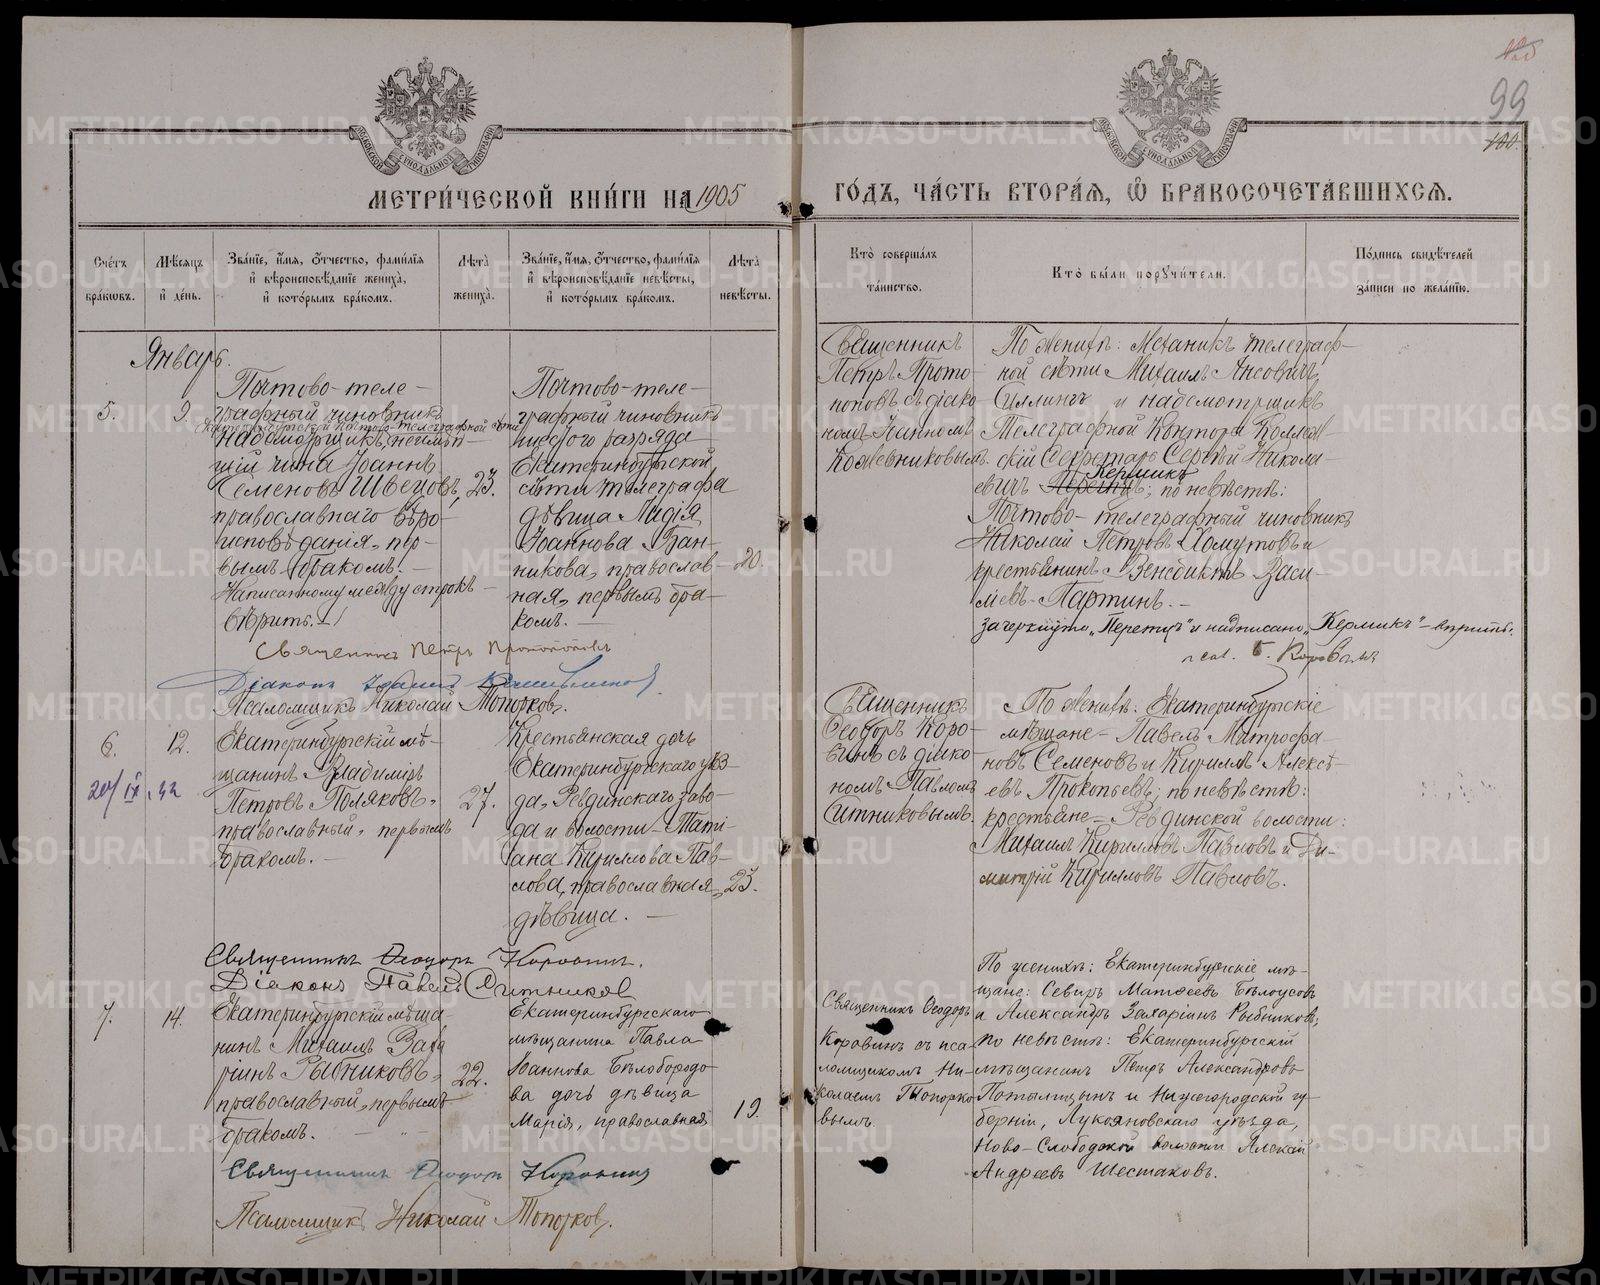 99
100.
МЕТРИ́ЧЕСКОЙ КНИ́ГИ НА 1905
ГО́ДЪ, ЧА́СТЬ ВТОРА́Я, Ѡ҆ БРАКОСОЧЕТА́ВШИХСѦ.
Сче́тъ бра́кѡвъ.
Мѣ́сѧцъ и҆ де́нь.
Зва́нїе, и҆́мѧ, ѻ҆́тчество, фами́лїѧ
и҆ вѣроисповѣ́данїе жениха̀,
и҆ кото́рымъ бра́комъ.
Лѣ́та жениха̀.
Зва́нїе, и҆́мѧ, ѻ҆́тчество, фами́лїѧ
и҆ вѣроисповѣ́данїе невѣ́сты,
и҆ кото́рымъ бра́комъ.
Лѣ́та невѣ́сты.
Кто̀ соверша́лъ
та́инство.
Кто̀ бы́ли порꙋчи́тели.
По́дпись свидѣ́телей
за́писи по жела́нїю.
Январь.
5.
9.
Почтово-теле-
графный чиновникъ
Екатеринбургской почтово-телеграфной сѣти
надсмотрщикъ, неимѣю-
щій чина Іоаннъ
Семеновъ Швецовъ,
православнаго вѣро-
исповѣданія, пер-
вымъ бракомъ. –
Написанному между строкъ –
вѣрить. –
23.
Почтово-теле-
графный чиновникъ
шестого разряда
Екатеринбургской
сѣти телеграфа
дѣвица Лидія
Іоаннова Бан-
никова, православ-
ная, первымъ бра-
комъ. –
20.
Священникъ
Петръ Прото-
поповъ съ діако-
номъ Іоанномъ
Кожевниковымъ.
По женихѣ: Механикъ телеграф-
ной сѣти Михаилъ Ансовичъ
Силлингъ и надсмотрщикъ
Телеграфной Конторы Коллеж-
скій Секретарь Сергѣй Никола-
Кермикъ
евичъ Перетцъ; по невѣстѣ:
Почтово-телеграфный чиновникъ
Николай Петровъ Хомутовъ и
крестьянинъ Венедиктъ Васи-
льевъ Партинъ. –
зачеркнуто „Перетцъ“ и надписано „Кермикъ“ – вѣрить.
Священникъ Петръ Протопоповъ
Діаконъ Іоаннъ Кожевниковъ.
Псаломщикъ Николай Топорковъ.
6.
12.
20/IX.42
Екатеринбургскій мѣ-
щанинъ Владиміръ
Петровъ Поляковъ,
православный, первымъ
бракомъ. –
27.
Крестьянская дочь
Екатеринбургскаго уѣз-
да, Ревдинскаго заво-
да и волости – Тать-
яна Кириллова Пав-
лова, православная,
дѣвица. –
23.
Священникъ
Ѳеодоръ Коро-
винъ съ діако-
номъ Павломъ
Ситниковымъ.
По женихѣ: Екатеринбургскіе
мѣщане – Павелъ Митрофа-
новъ Семеновъ и Кириллъ Алексѣ-
евъ Прокопьевъ; по невѣстѣ:
крестьяне – Ревдинской волости:
Михаилъ Кирилловъ Павловъ и Ди-
митрій Кирилловъ Павловъ.
Священникъ Ѳеодоръ Коровинъ.
Діаконъ Павелъ Ситниковъ
7.
14.
Екатеринбургскій мѣща-
нинъ Михаилъ Заха-
ріинъ Рыбниковъ,
православный, первымъ
бракомъ.
22.
Екатеринбургскаго
мѣщанина Павла
Іоаннова Бѣлобородо-
ва дочь дѣвица
Марія, православная
19.
Священникъ Ѳеодоръ
Коровинъ съ пса-
ломщикомъ Ни-
колаемъ Топорко-
вымъ.
По женихѣ: Екатеринбургскіе мѣ-
щане: Северъ Матѳеевъ Бѣлоусовъ
и Александръ Захаріинъ Рыбниковъ;
по невѣстѣ: Екатеринбургскій
мѣщанинъ Петръ Александровъ
и Нижегородской гу-
берніи, Лукояновскаго уѣзда,
Ново-Слободской волости Алексѣй
Андреевъ Шестаковъ.
Священникъ Ѳеодоръ Коровинъ
Псаломщикъ Николай Топорковъ.